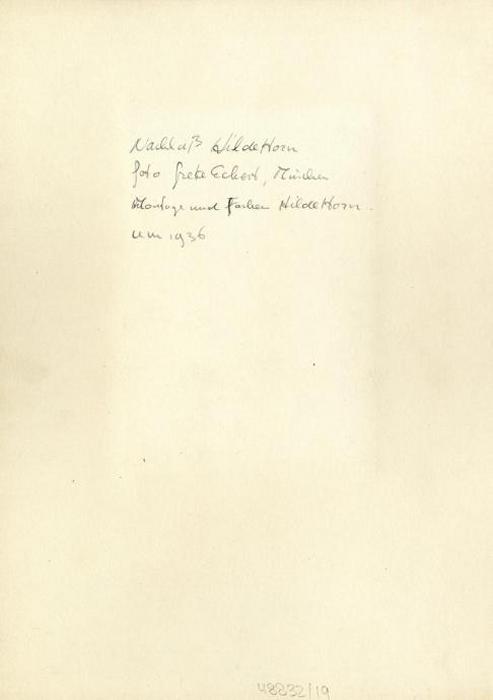 Nachlaß Hilde Horn
foto Grete Eckert, München
Montage und Farben Hilde Horn.
um 1936
48832/19